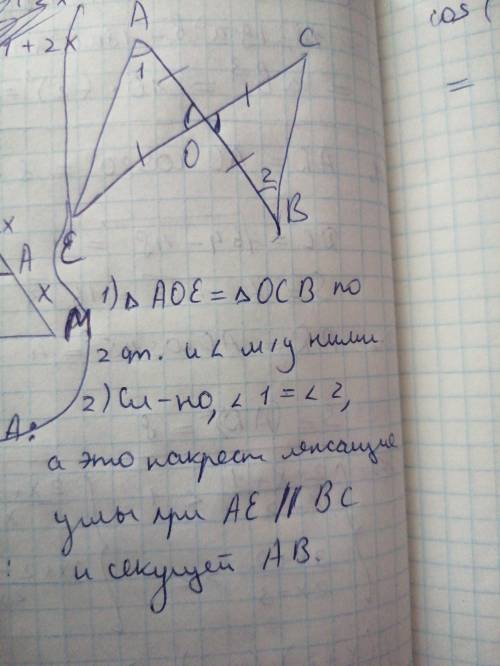 1 + 2x
cos (
=
A
C
1
O
2
B
E
x
A
x
M
1) △ AOE = △ OCB по
2 от. и ∠ м/у ними
2) Сл-но, ∠ 1 = ∠ 2,
A:
а это накрест лежащие
углы при AE || BC
и секущей AB.